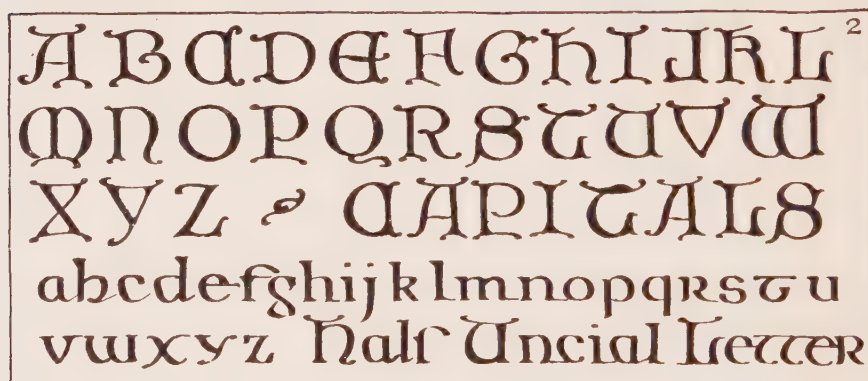 ABCDEFGHIJKL 2
MNOPQRSTUVW
XYZ CAPITALS
abcdefghijklmnopqrstu
vwxyz Half Uncial Letter